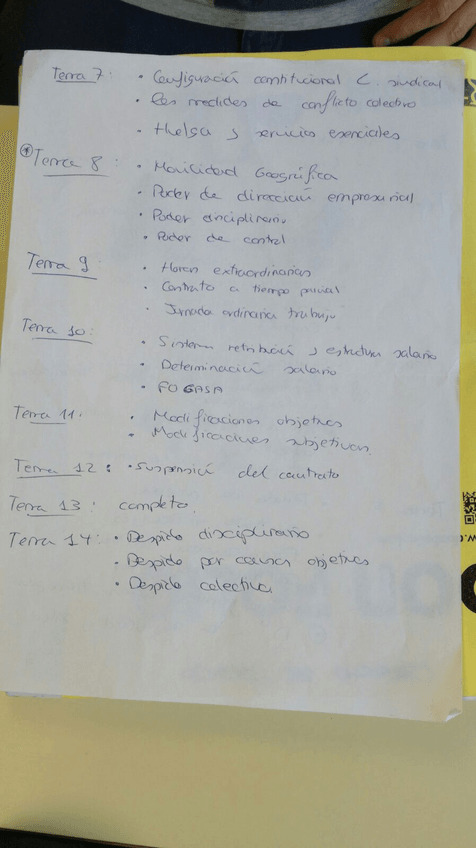 Tema 7: • Configuración constitucional L. sindical
• Las medidas de conflicto colectivo
• Huelga y servicios esenciales
* Tema 8: • Movilidad Geográfica
• Poder de dirección empresarial
• Poder disciplinario
• Poder de control
Tema 9: • Horas extraordinarias
• Contrato a tiempo parcial
• Jornada ordinaria trabajo
Tema 10: • Sistema retribución y estructura salario
• Determinación salario
• FOGASA
Tema 11: • Modificaciones objetivas
• Modificaciones subjetivas
Tema 12: • Suspensión del contrato
Tema 13: completo
Tema 14: • Despido disciplinario
• Despido por causas objetivas
• Despido colectivo